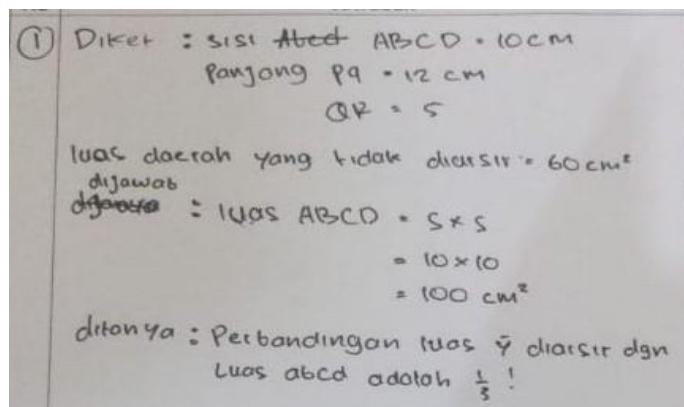 ① Diket : sisi Abcd ABCD = 10cm
Panjang Pq = 12 cm
QR = 5
luas daerah yang tidak diarsir = 60 cm²
dijawab
: luas ABCD = s × s
= 10 × 10
= 100 cm²
ditanya : Perbandingan luas ÿ diarsir dgn
Luas abcd adalah 1/5 !